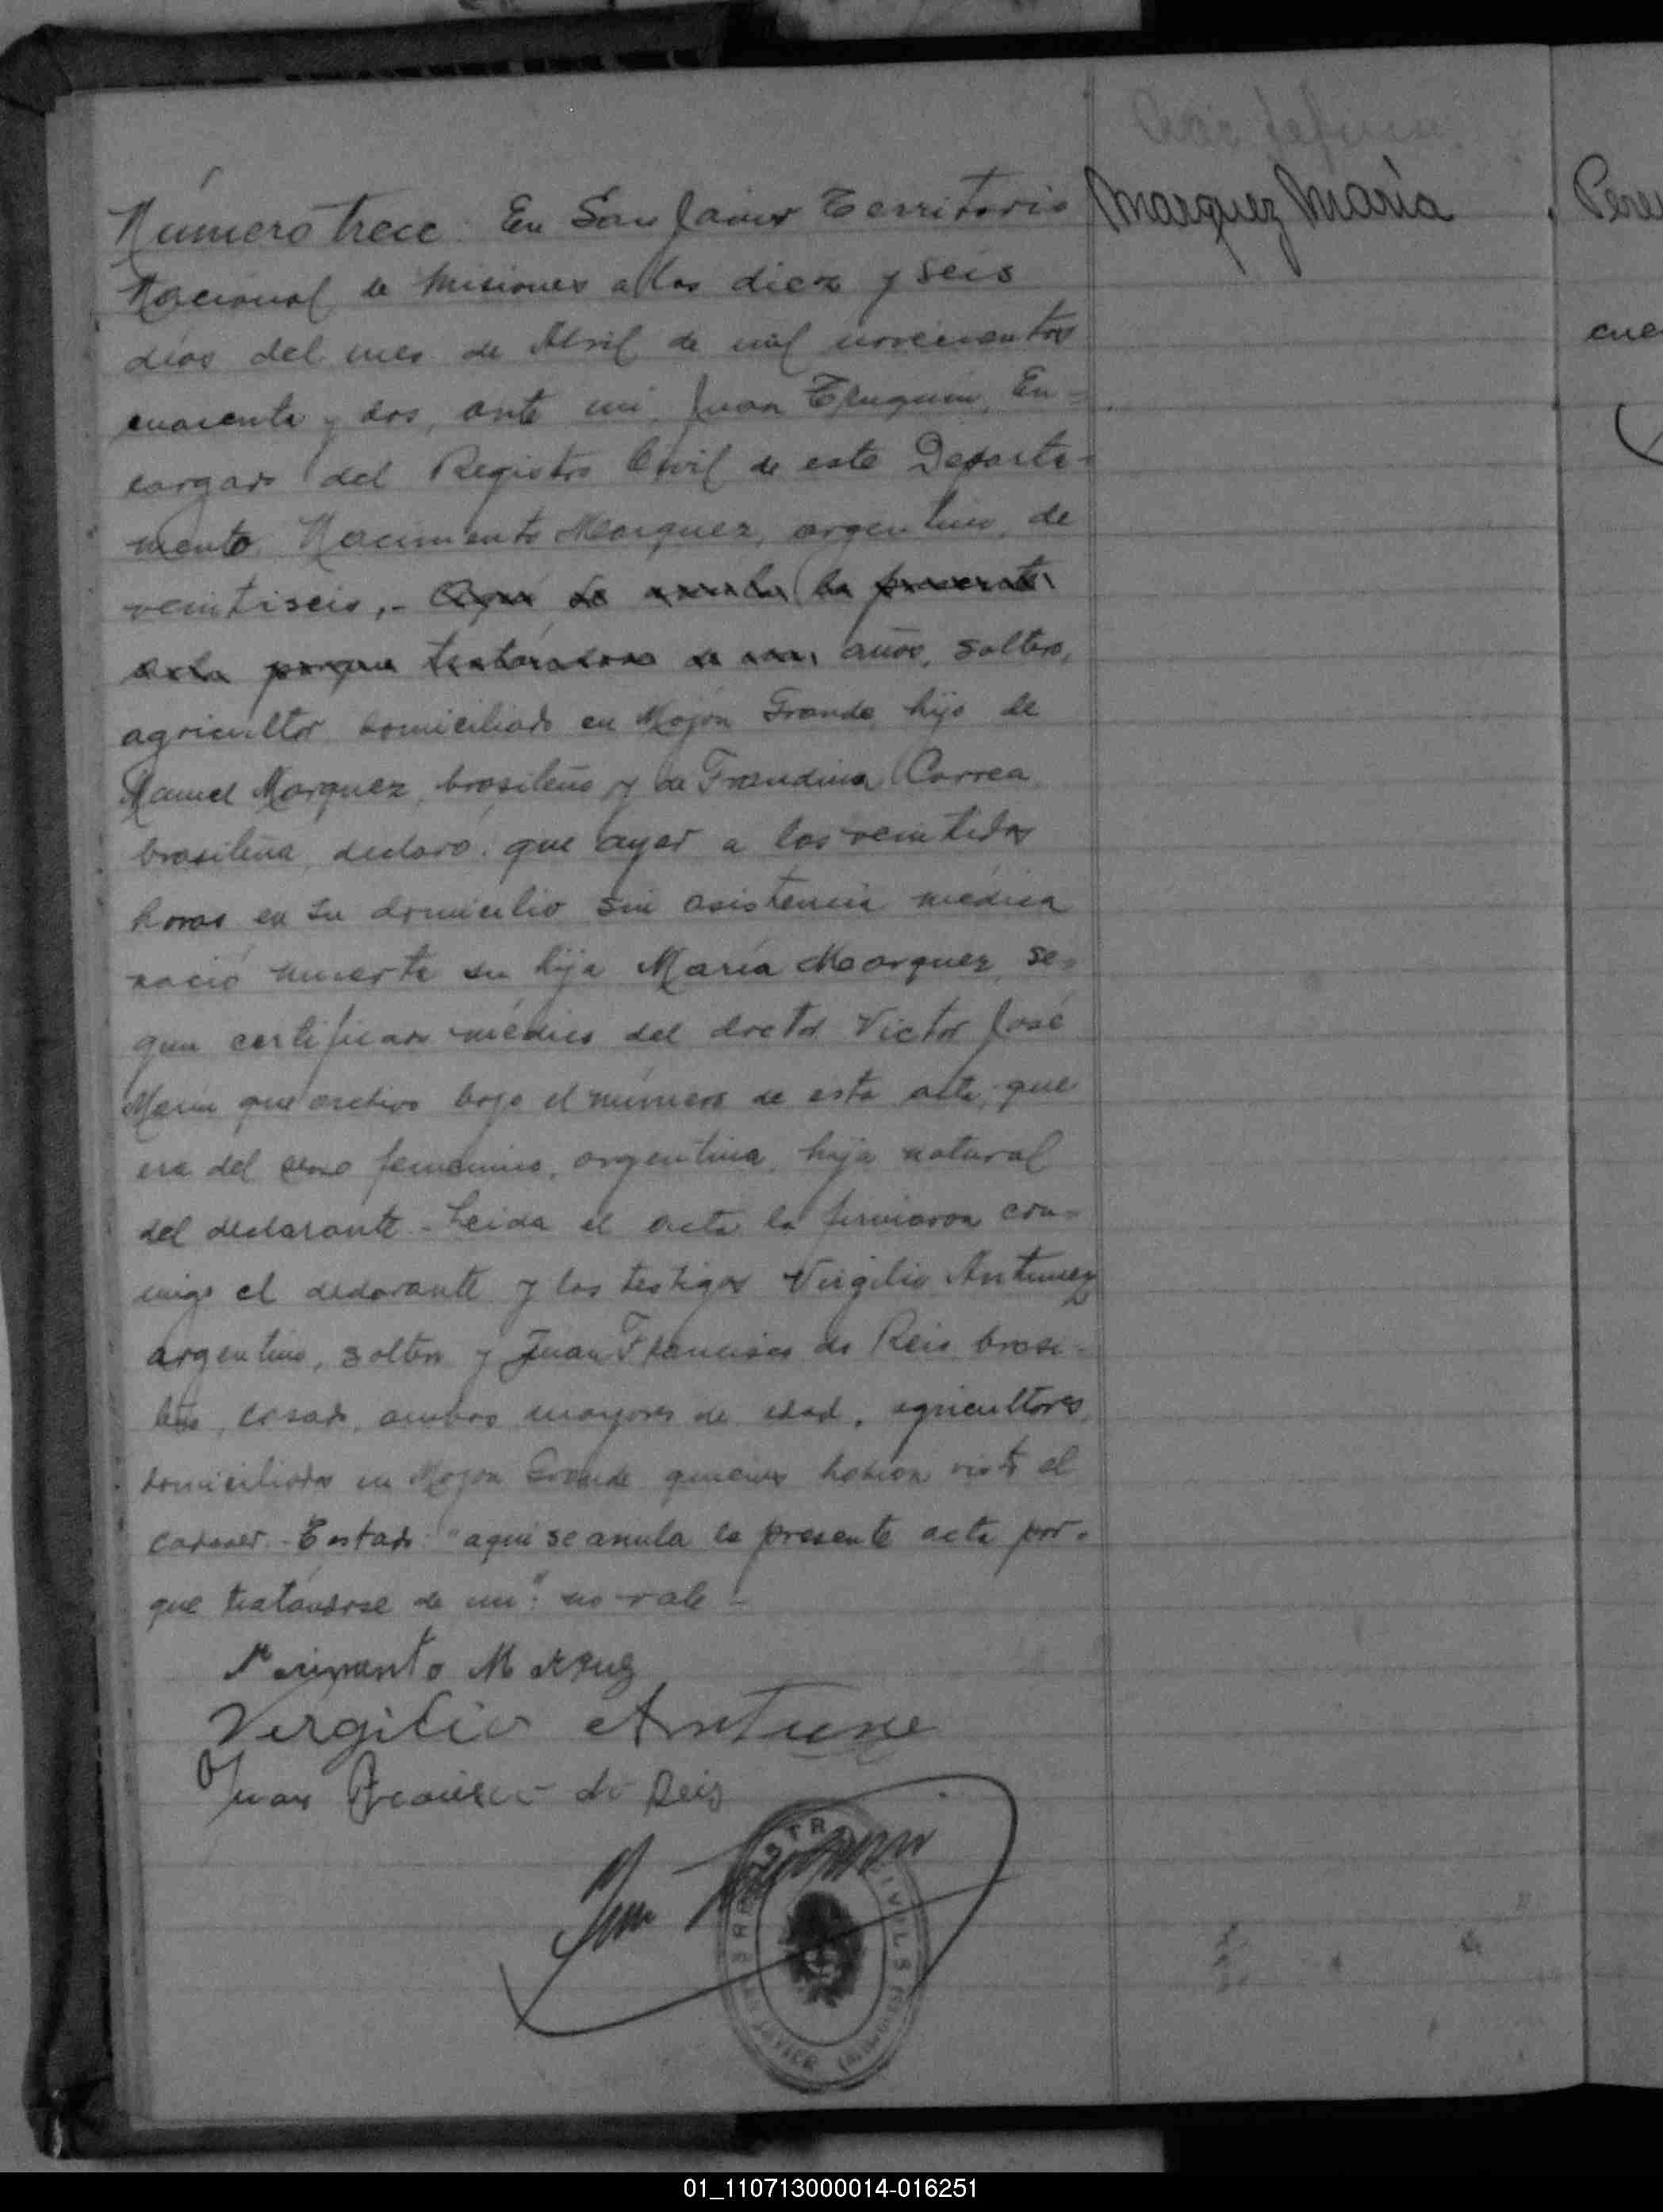 Marquez María
Número trece. En San Javier Territorio
Nacional de Misiones a los diez y seis
días del mes de Abril de mil novecientos
cuarenta y dos, ante mi, Juan En=
cargado del Registro Civil de este Departa-
mento Nacimiento Marquez, argentino, de
veintiseis,- Aquí se anula la presente
acta porque tratándose de un, años, soltero,
agricultor domiciliado en Mojón Grande, hijo de
Manuel Marquez, brasileño y de Correa,
brasileña, declaró: que ayer a las veintidos
horas en su domicilio sin asistencia médica
nació muerta su hija María Marquez, se=
gun certificado médico del doctor Victor José
Marin que archivo bajo el número de esta acta, que
era del sexo femenino, argentina, hija natural
del declarante.- Leida el acta la firmaron con=
migo el declarante y los testigos Virgilio Antunez
argentino, soltero y Juan Francisco do Reis brasi-
leño, casado, ambos mayores de edad, agricultores,
domiciliados en Mojon Grande quienes habian visto el
cadaver.- Testado: "aquí se anula la presente acta por=
que tratándose de un": no vale.-
Nacimento Marquez
Vergilio Antune
Juan Francisco do Reis
Juan
01_110713000014-016251